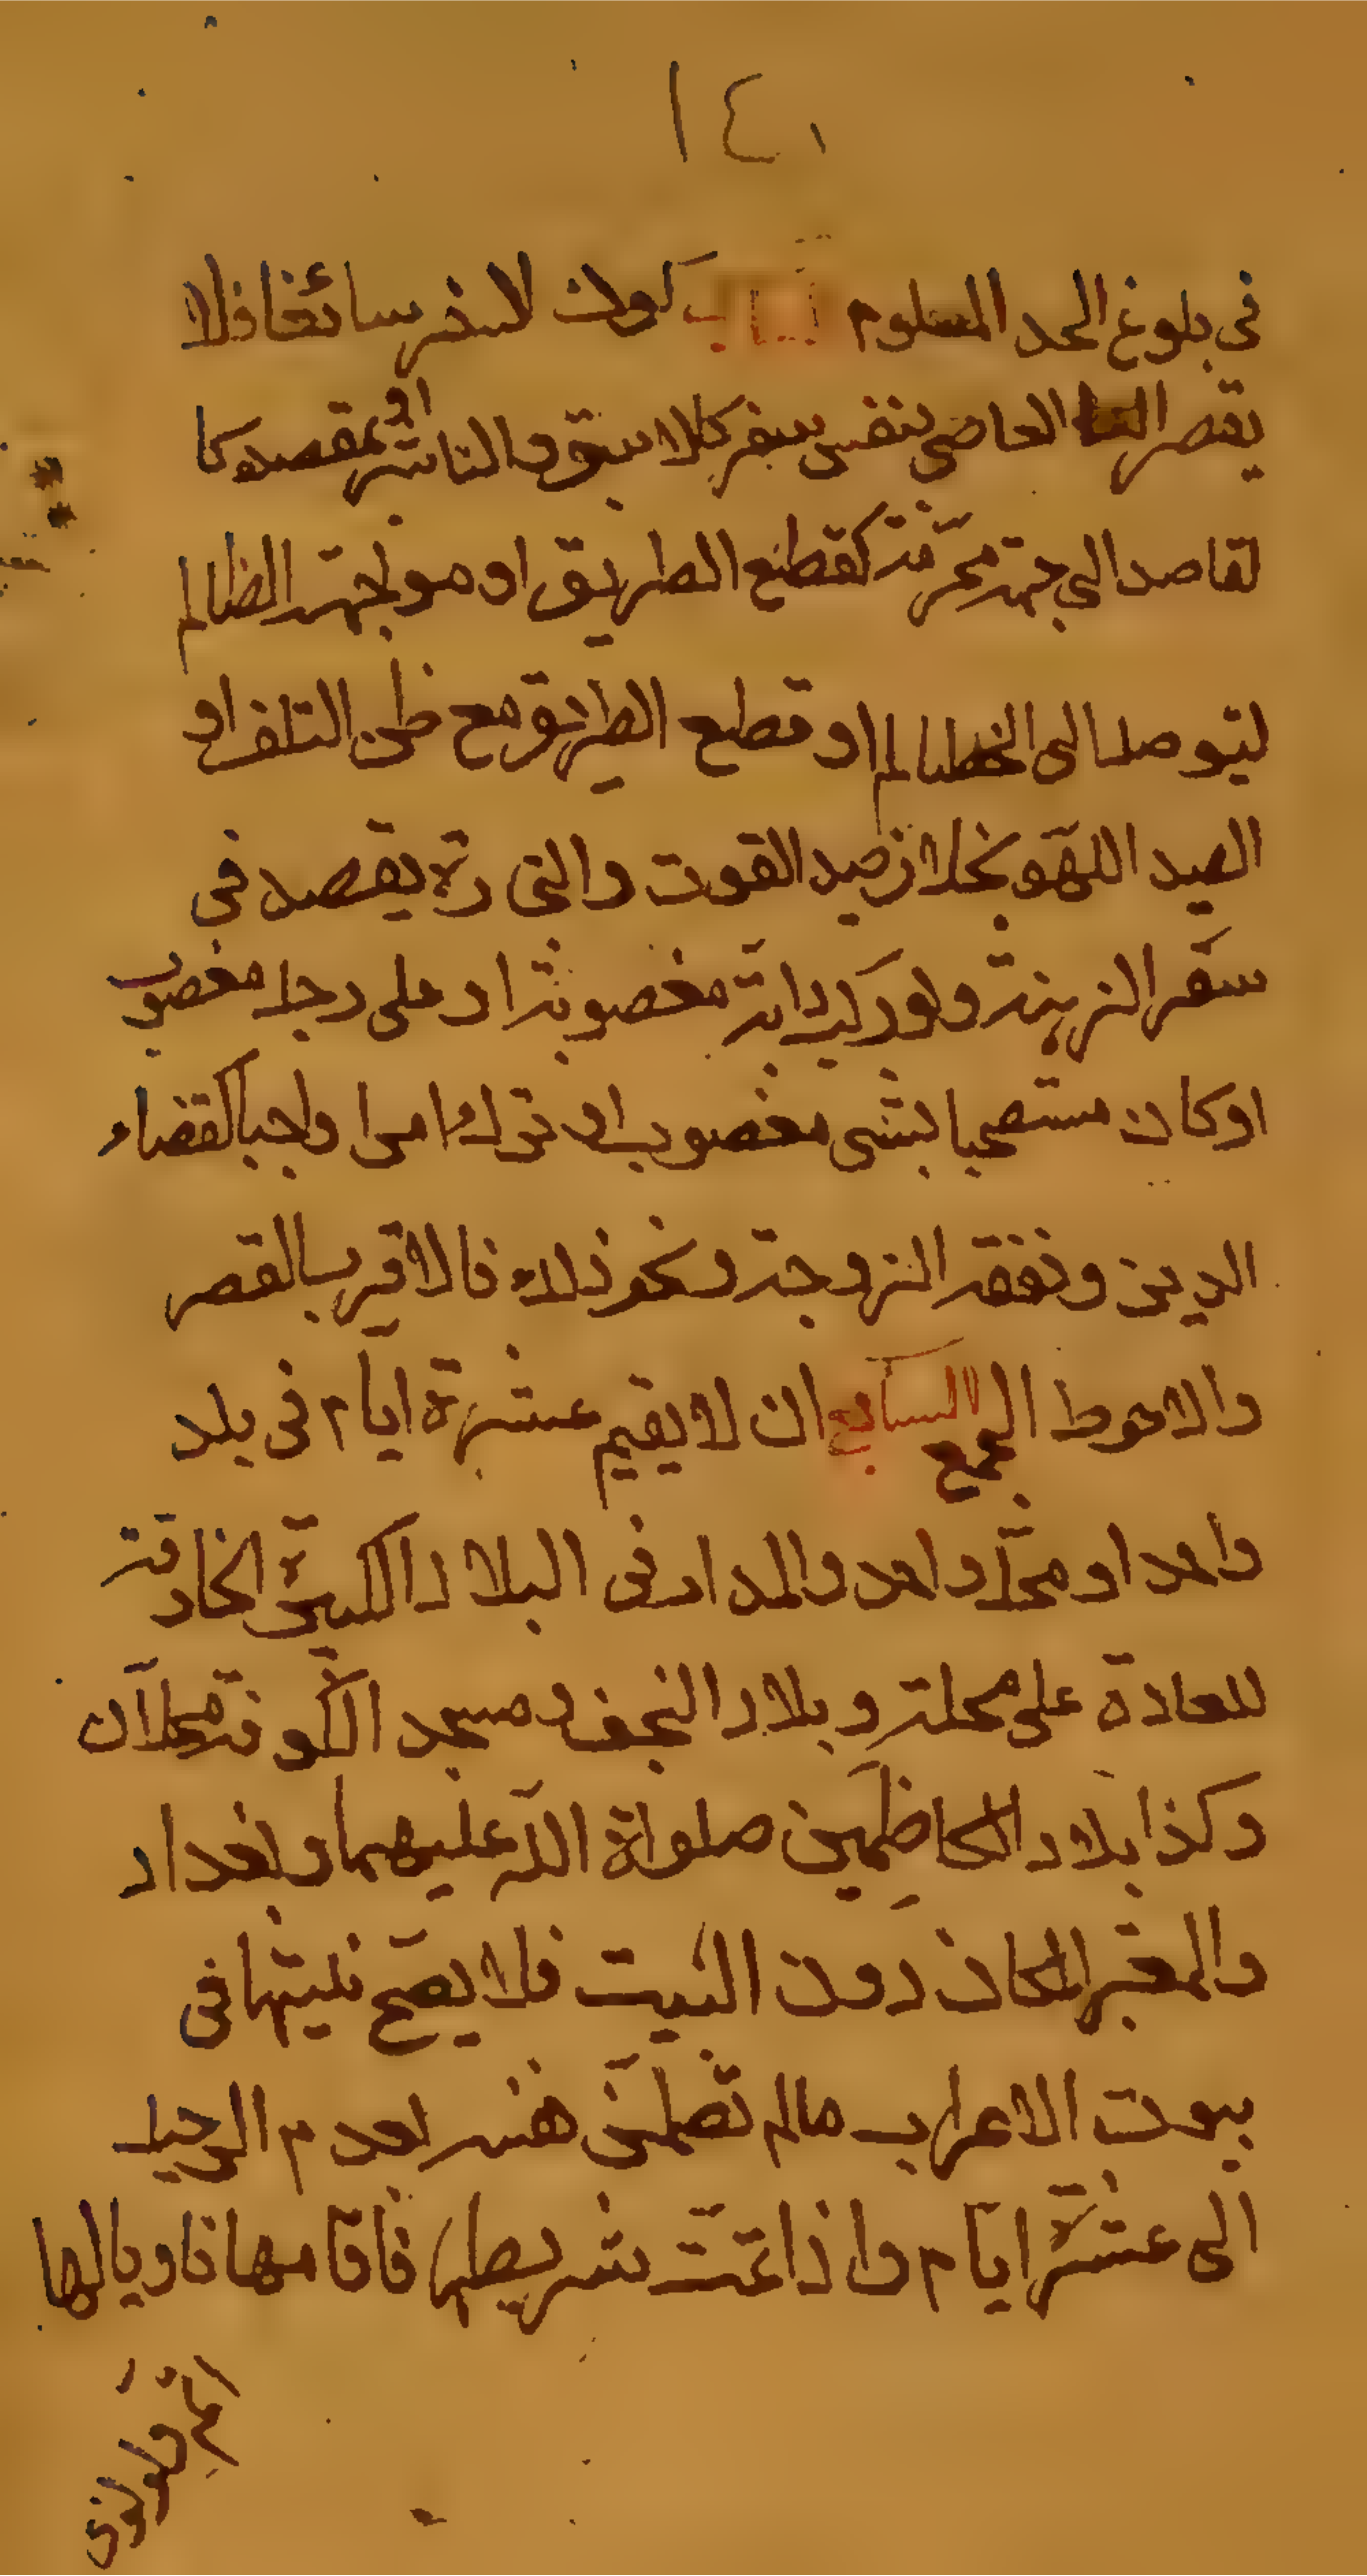 ١٤٠
في بلوغ الحد المعلوم كون السفر سائغا فلا
يقصر العاصي بنفس سفر كالابق والناشز او بمقصده كا
لقاصد الى جهة محرمة كقطع الطريق او مواجهة الظالم
ليتوصل الى الظالم او قطع الطريق مع ظن التلف او
الصيد اللهو بخلاف صيد القوت والتجارة يقصد في
سفر الزينة ولو ركب دابة مغصوبة او على رحل مغصوب
او كان مستصحبا بشى مغصوب او ترك امرا واجبا كقضاء
الدين ونفقة الزوجة ونحو ذلك فالاقرب القصر
والاحوط الجمع السابع ان لا يقيم عشرة ايام في بلد
واحد او محل واحد والمدار في البلاد الكبيرة الخارقة
للعادة على محلته وبلاد النجف ومسجد الكوفة محلان
وكذا بلاد الكاظمين صلواة الله عليهما وبغداد
والمعتبر المكان دون البيت فلا يصح نيتها في
بيوت الاعراب مالم تطمئن نفسه بعدم الرحيل
الى عشرة ايام واذا تمت شريطها فاقامها ناويا لها